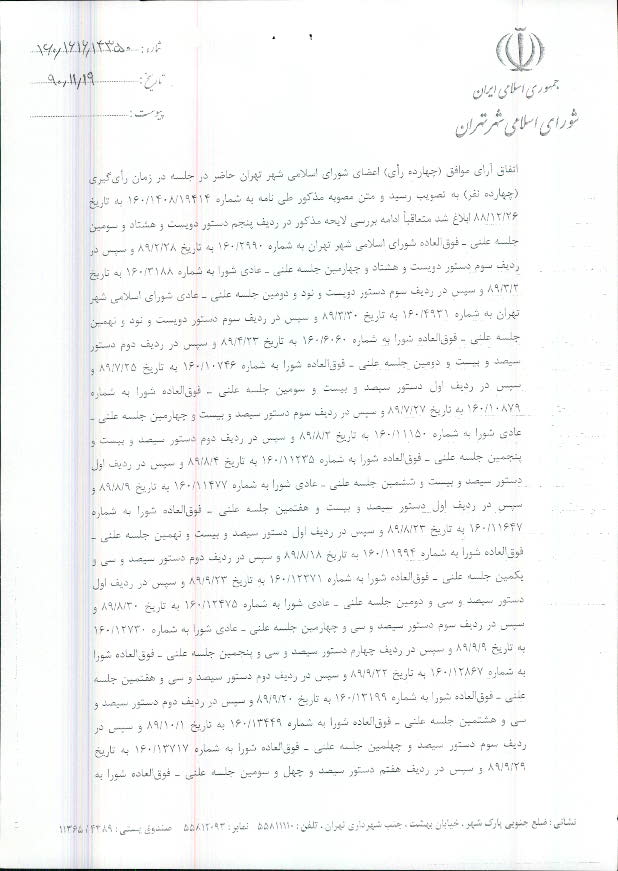 جمهوری اسلامی ایران
شورای اسلامی شهر تهران
شماره: ۱۶۰/۱۶۱۶/۱۴۳۵۰
تاریخ: ۹۰/۱۱/۱۹
پیوست:
اتفاق آرای موافق (چهارده رأی) اعضای شورای اسلامی شهر تهران حاضر در جلسه در زمان رأی‌گیری
(چهارده نفر) به تصویب رسید و متن مصوبه مذکور طی نامه به شماره ۱۶۰/۱۴۰۸/۱۹۴۱۴ به تاریخ
۸۸/۱۲/۲۶ ابلاغ شد متعاقباً ادامه بررسی لایحه مذکور در ردیف پنجم دستور دویست و هشتاد و سومین
جلسه علنی ـ فوق‌العاده شورای اسلامی شهر تهران به شماره ۱۶۰/۲۹۹۰ به تاریخ ۸۹/۲/۲۸ و سپس در
ردیف سوم دستور دویست و هشتاد و چهارمین جلسه علنی ـ عادی شورا به شماره ۱۶۰/۳۱۸۸ به تاریخ
۸۹/۳/۲ و سپس در ردیف سوم دستور دویست و نود و دومین جلسه علنی ـ عادی شورای اسلامی شهر
تهران به شماره ۱۶۰/۴۹۳۱ به تاریخ ۸۹/۳/۳۰ و سپس در ردیف سوم دستور دویست و نود و نهمین
جلسه علنی ـ فوق‌العاده شورا به شماره ۱۶۰/۶۰۶۰ به تاریخ ۸۹/۴/۲۳ و سپس در ردیف دوم دستور
سیصد و بیست و دومین جلسه علنی ـ فوق‌العاده شورا به شماره ۱۶۰/۱۰۷۴۶ به تاریخ ۸۹/۷/۲۵ و
سپس در ردیف اول دستور سیصد و بیست و سومین جلسه علنی ـ فوق‌العاده شورا به شماره
۱۶۰/۱۰۸۷۹ به تاریخ ۸۹/۷/۲۷ و سپس در ردیف سوم دستور سیصد و بیست و چهارمین جلسه علنی ـ
عادی شورا به شماره ۱۶۰/۱۱۱۵۰ به تاریخ ۸۹/۸/۲ و سپس در ردیف دوم دستور سیصد و بیست و
پنجمین جلسه علنی ـ فوق‌العاده شورا به شماره ۱۶۰/۱۱۲۳۵ به تاریخ ۸۹/۸/۴ و سپس در ردیف اول
دستور سیصد و بیست و ششمین جلسه علنی ـ عادی شورا به شماره ۱۶۰/۱۱۴۷۷ به تاریخ ۸۹/۸/۹ و
سپس در ردیف اول دستور سیصد و بیست و هفتمین جلسه علنی ـ فوق‌العاده شورا به شماره
۱۶۰/۱۱۶۴۷ به تاریخ ۸۹/۸/۲۳ و سپس در ردیف اول دستور سیصد و بیست و نهمین جلسه علنی ـ
فوق‌العاده شورا به شماره ۱۶۰/۱۱۹۹۴ به تاریخ ۸۹/۸/۱۸ و سپس در ردیف دوم دستور سیصد و سی و
یکمین جلسه علنی ـ فوق‌العاده شورا به شماره ۱۶۰/۱۲۳۷۱ به تاریخ ۸۹/۹/۲۳ و سپس در ردیف اول
دستور سیصد و سی و دومین جلسه علنی ـ عادی شورا به شماره ۱۶۰/۱۲۴۷۵ به تاریخ ۸۹/۸/۳۰ و
سپس در ردیف سوم دستور سیصد و سی و چهارمین جلسه علنی ـ عادی شورا به شماره ۱۶۰/۱۲۷۳۰
به تاریخ ۸۹/۹/۹ و سپس در ردیف چهارم دستور سیصد و سی و پنجمین جلسه علنی ـ فوق‌العاده شورا
به شماره ۱۶۰/۱۲۸۶۷ به تاریخ ۸۹/۹/۲۲ و سپس در ردیف دوم دستور سیصد و سی و هفتمین جلسه
علنی ـ فوق‌العاده شورا به شماره ۱۶۰/۱۳۱۹۹ به تاریخ ۸۹/۹/۲۰ و سپس در ردیف دوم دستور سیصد و
سی و هشتمین جلسه علنی ـ فوق‌العاده شورا به شماره ۱۶۰/۱۳۴۴۹ به تاریخ ۸۹/۱۰/۱ و سپس در
ردیف سوم دستور سیصد و چهلمین جلسه علنی ـ فوق‌العاده شورا به شماره ۱۶۰/۱۳۷۱۷ به تاریخ
۸۹/۹/۲۹ و سپس در ردیف هفتم دستور سیصد و چهل و سومین جلسه علنی ـ فوق‌العاده شورا به
نشانی: ضلع جنوبی پارک شهر، خیابان بهشت، جنب شهرداری تهران، تلفن: ۵۵۸۱۱۱۱۰ نمابر: ۵۵۸۱۲۰۹۳ صندوق پستی: ۴۳۸۹ / ۱۱۳۶۵